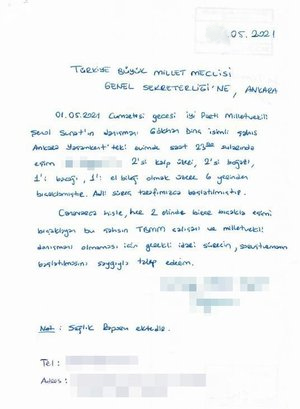 .05.2021
TÜRKİYE BÜYÜK MİLLET MECLİSİ
GENEL SEKRETERLİĞİ'NE, ANKARA
01.05.2021 Cumartesi gecesi İyi Parti Milletvekili
Şenol Sunat'ın danışmanı Gökhan isimli şahıs
Ankara Yaşamkent'teki evinde saat 23⁰⁰ sularında
eşim 2'si kalp üzeri, 2'si boğazı,
1'i bacağı, 1'i el bileği olmak üzere 6 yerinden
bıçaklamıştır. Adli süreç tarafımızca başlatılmıştır.
Canavarca hisle, her 2 elinde birer bıçakla eşimi
bıçaklayan bu şahsın TBMM çalışanı ve milletvekili
danışmanı olmaması için gerekli idari sürecin, soruşturmanın
başlatılmasını saygıyla talep ederim.
Not: Sağlık Raporu ektedir.
Tel:
Adres: